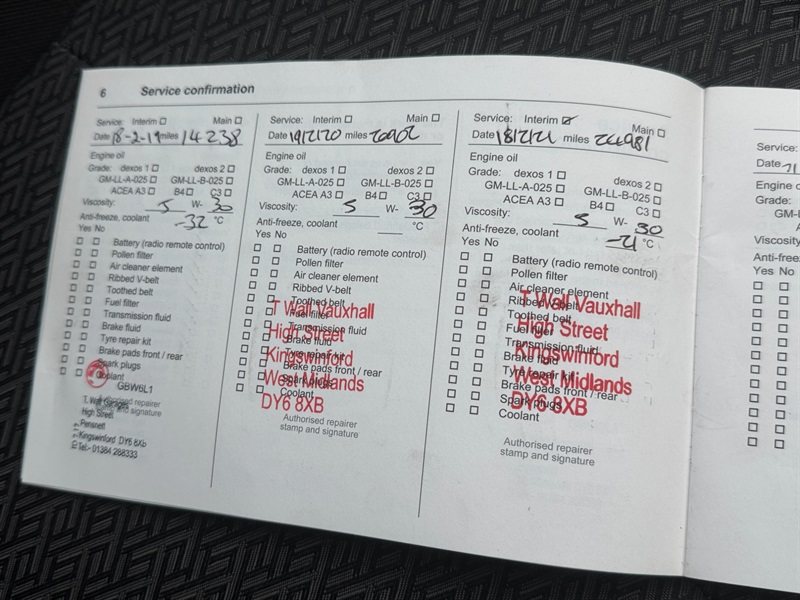 6 Service confirmation
Service: Interim ☐ Main ☐
Date 18-2-19 miles 14238
Engine oil
Grade: dexos 1 ☐ dexos 2 ☐
GM-LL-A-025 ☐ GM-LL-B-025 ☐
ACEA A3 ☐ B4 ☐ C3 ☐
Viscosity: 5 W- 30
Anti-freeze, coolant -32 °C
Yes No
☐ ☐ Battery (radio remote control)
☐ ☐ Pollen filter
☐ ☐ Air cleaner element
☐ ☐ Ribbed V-belt
☐ ☐ Toothed belt
☐ ☐ Fuel filter
☐ ☐ Transmission fluid
☐ ☐ Brake fluid
☐ ☐ Tyre repair kit
☐ ☐ Brake pads front / rear
☐ ☐ Spark plugs
☐ ☐ Coolant
GBW6L1
Authorised repairer
stamp and signature
T. Wall
High Street
Pensnett
Kingswinford DY6 8XB
Tel:- 01384 288333
Service: Interim ☐ Main ☐
Date 19/2/20 miles 20902
Engine oil
Grade: dexos 1 ☐ dexos 2 ☐
GM-LL-A-025 ☐ GM-LL-B-025 ☐
ACEA A3 ☐ B4 ☐ C3 ☐
Viscosity: 5 W- 30
Anti-freeze, coolant °C
Yes No
☐ ☐ Battery (radio remote control)
☐ ☐ Pollen filter
☐ ☐ Air cleaner element
☐ ☐ Ribbed V-belt
☐ ☐ Toothed belt
☐ ☐ Fuel filter
☐ ☐ Transmission fluid
☐ ☐ Brake fluid
☐ ☐ Tyre repair kit
☐ ☐ Brake pads front / rear
☐ ☐ Spark plugs
☐ ☐ Coolant
T Wall Vauxhall
High Street
Kingswinford
West Midlands
DY6 8XB
Authorised repairer
stamp and signature
Service: Interim ☑ Main ☐
Date 18/2/21 miles 24981
Engine oil
Grade: dexos 1 ☐ dexos 2 ☐
GM-LL-A-025 ☐ GM-LL-B-025 ☐
ACEA A3 ☐ B4 ☐ C3 ☐
Viscosity: 5 W- 30
Anti-freeze, coolant -21 °C
Yes No
☐ ☐ Battery (radio remote control)
☐ ☐ Pollen filter
☐ ☐ Air cleaner element
☐ ☐ Ribbed V-belt
☐ ☐ Toothed belt
☐ ☐ Fuel filter
☐ ☐ Transmission fluid
☐ ☐ Brake fluid
☐ ☐ Tyre repair kit
☐ ☐ Brake pads front / rear
☐ ☐ Spark plugs
☐ ☐ Coolant
T Wall Vauxhall
High Street
Kingswinford
West Midlands
DY6 8XB
Authorised repairer
stamp and signature
Service:
Date
Engine
Grade:
Viscosity
Yes No